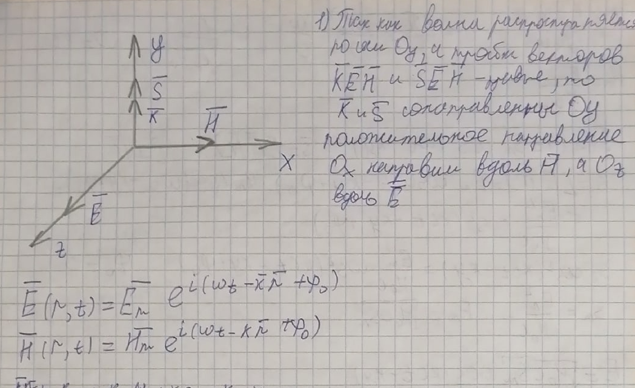 y
S̅
K̅
H̅
X
E̅
z
1) Так как волна распространяется
по оси Oy, а тройки векторов
K̅E̅H̅ и S̅E̅H̅ - правые, то
K̅ и S̅ сонаправленны Oy
положительное направление
Ox направим вдоль H̅, а Oz
вдоль E̅
E̅(r,t) = E̅m e^i(ωt - k̅r̅ + φ₀)
H̅(r,t) = H̅m e^i(ωt - k r̅ + φ₀)